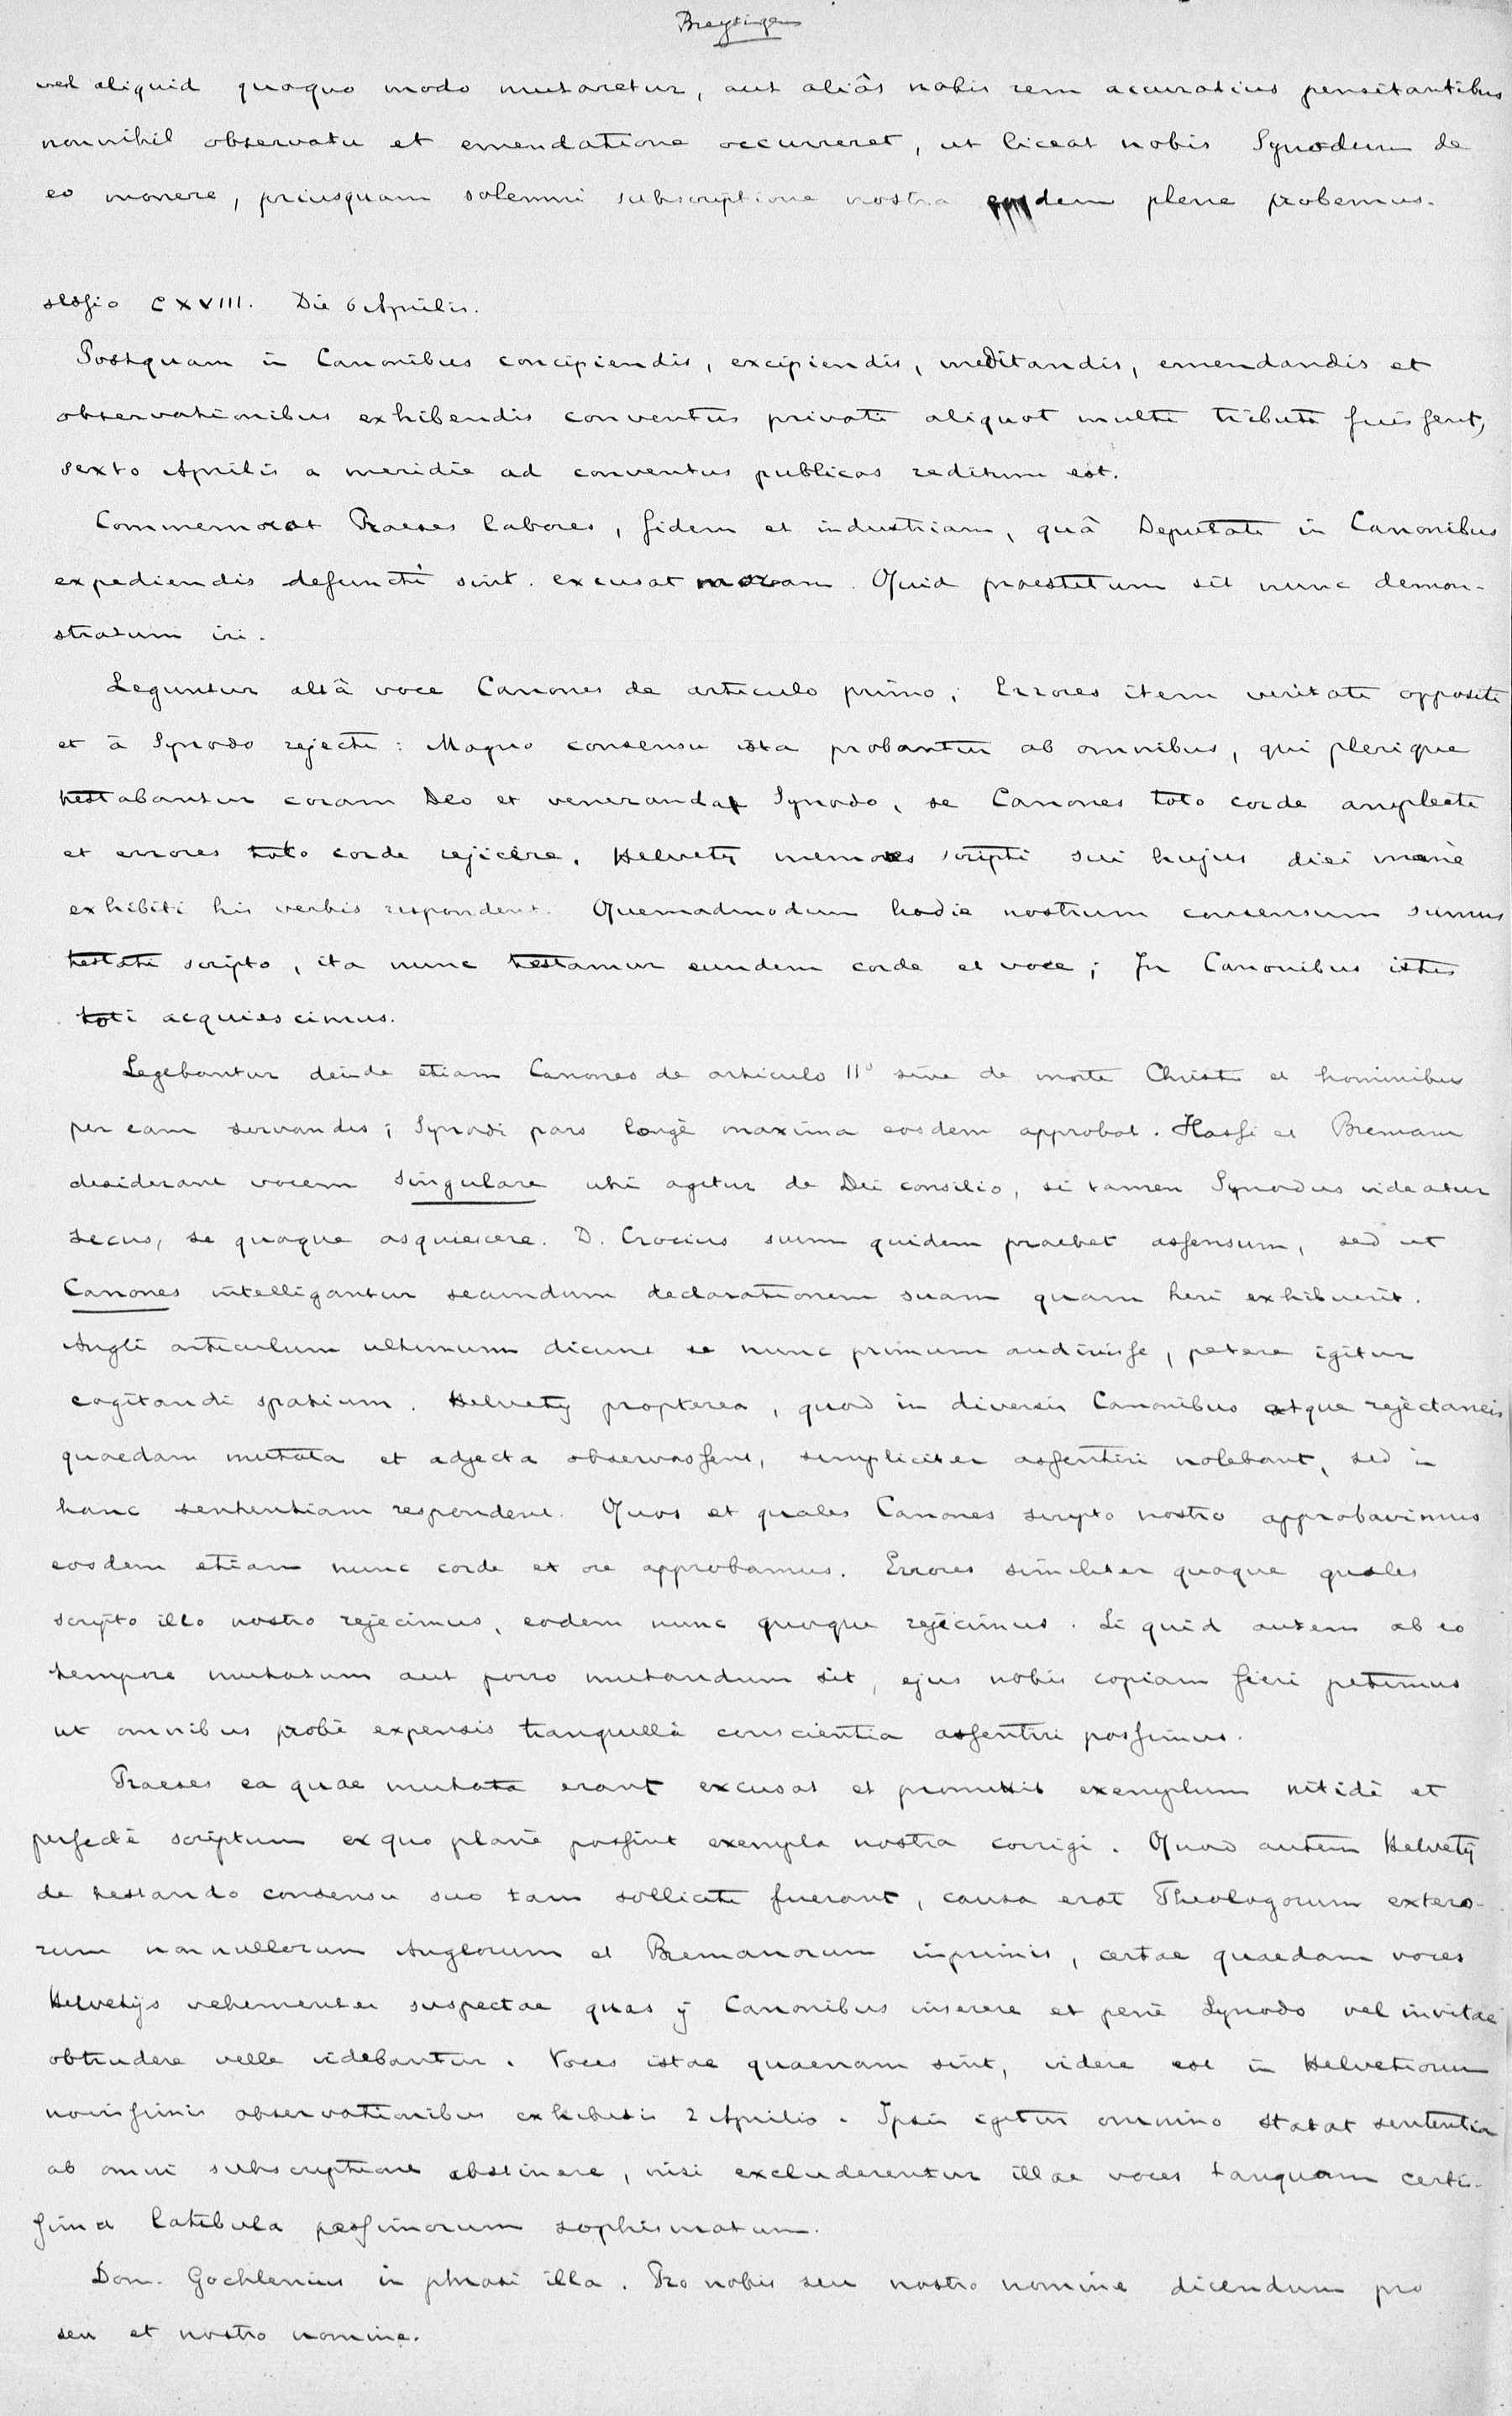 Breytingeri
vel aliquid quoquo modo mutaretur, aut aliâs nobis rem accuratius pensitantibus
nonnihil observatu et emendatione occurreret, ut liceat nobis Synodum de
eo monere, priusquam solemni subscriptione nostra eosdem plene probemus.
Sessio CXVIII. Die 6 Aprilis.
Postquam in Canonibus concipiendis, excipiendis, meditandis, emendandis et
observationibus exhibendis conventus privati aliquot multi tributi fuissent,
sexto Aprilis a meridie ad conventus publicos reditum est.
Commemorat Praeses labores, fidem et industriam, quâ Deputati in Canonibus
expediendis defuncti sint. excusat moram. Quid praestitum sit nunc demon-
stratum iri.
Leguntur altâ voce Canones de articulo primo; Errores item veritati oppositi
et à Synodo rejecti: Magno consensu ista probantur ab omnibus, qui plerique
testabantur coram Deo et veneranda Synodo, se Canones toto corde amplecti
et errores toto corde rejicere. Helvetij memores scripti sui hujus diei manè
exhibiti his verbis respondent. Quemadmodum hodie nostrum consensum sumus
testati scripto, ita nunc testamur eundem corde et voce; In Canonibus istis
toti acquiescimus.
Legebantur deinde etiam Canones de articulo II⁰ sive de morte Christi et hominibus
per eam servandis; Synodi pars longè maxima eosdem approbat. Hassi et Bremani
desiderant vocem singulare ubi agitur de Dei consilio, si tamen Synodus videatur
secus, se quoque asquiescere. D. Crocius suum quidem praebet assensum, sed ut
Canones intelligantur secundum declarationem suam quam heri exhibuerit.
Angli articulum ultimum dicunt se nunc primum audivisse, petere igitur
cogitandi spatium. Helvetij propterea, quod in diversis Canonibus atque rejectaneis
quaedam mutata et adjecta observassent, simpliciter assentiri nolebant, sed in
hanc sententiam respondent. Quos et quales Canones scripto nostro approbavimus
eosdem etiam nunc corde et ore approbamus. Errores similiter quoque quales
scripto illo nostro rejecimus, eodem nunc quoque rejicimus. Si quid autem ab eo
tempore mutatum aut porro mutandum sit, ejus nobis copiam fieri petimus
ut omnibus probè expensis tranquillâ conscientia assentiri possimus.
Praeses ea quae mutata erant excusat et promittit exemplum nitidè et
perfectè scriptum ex quo planè possint exempla nostra corrigi. Quod autem Helvetij
de testando consensu suo tam solliciti fuerant, causa erat Theologorum extero-
rum nonnullorum Anglorum et Bremanorum inprimis, certae quaedam voces
Helvetijs vehementer suspectae quas ij Canonibus inserere et penè Synodo vel invitae
obtrudere velle videbantur. Voces istae quaenam sint, videre est in Helvetiorum
novissimis observationibus exhibitis 2 Aprilis. Ipsis igitur omnino statat sententia
ab omni subscriptione abstinere, nisi excluderentur illae voces tanquam certis-
sima latibula pessimorum sophismatum.
Dom. Gochlenius in phrasi illa. Pro nobis seu nostro nomine dicendum pro
seu et nostro nomine.